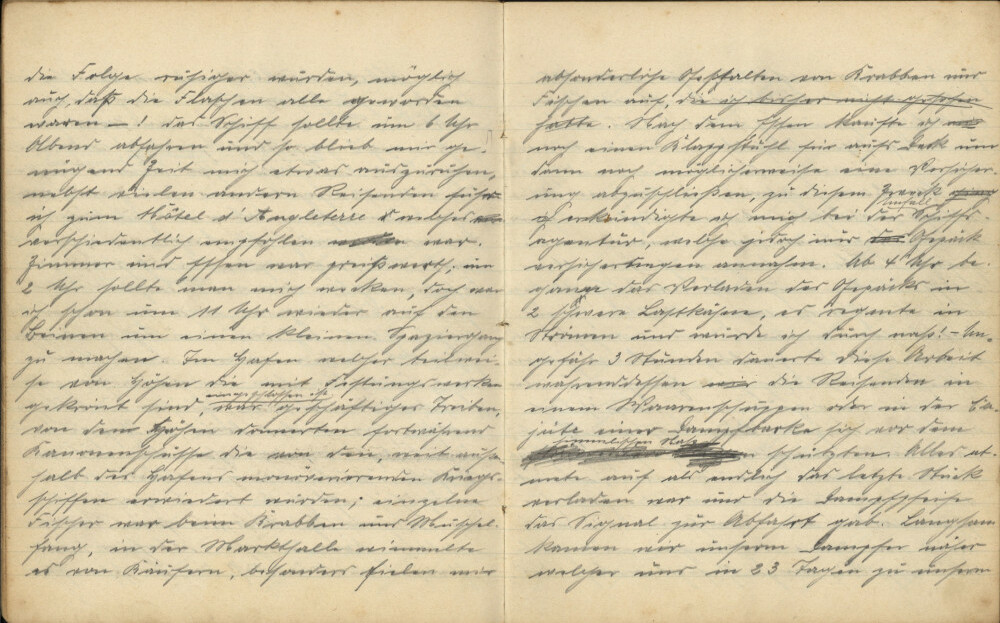 die Folge ruhiger wurden, möglich
auch, daß die Flaschen alle geworden
waren —! Das Schiff sollte um 6 Uhr
Abens abfahren und so blieb mir ge-
nügend Zeit mich etwas auszuruhen,
nebst vielen andern Reisenden fuhr
ich zum Hôtel d'Angleterre welches
verschiedentlich empfohlen war.
Zimmer und Essen war preißwerth; um
2 Uhr sollte man mich wecken, doch war
ich schon um 11 Uhr wieder auf den
Beinen um einen kleinen Spaziergang
zu machen. Im Hafen welcher teilwei-
se von Höhen die mit Festungswerken
gekrönt sind, eingeschlossen ist war geschäftiges Treiben,
von dem Höhen donnerten fortwährend
Kanonenschüsse die von den, weit außer
halb des Hafens manövrierenden Kriegs-
schiffen erwiedert wurden; einzelne
Fischer war beim Krabben und Muschel
fang, in der Markthalle wimmelte
es von Käufern, besonders fielen mir
absonderliche Gestalten von Krabben und
Fischen auf, die ich bisher nicht gesehen
hatte. Nach dem Essen kaufte ich
noch einen Klappstuhl für aufs Deck um
dann noch möglicherweise eine Versicher-
ung abzuschließen, zu diesem Zweck
erkundigte ich mich bei der Schiffs-
agentur, welche jedoch nur Gepäck
versicherungen annahm. Ab 4 Uhr be-
gann das Verladen des Gepäcks in
2 schwere Lastkähne, es regnete in
Strömen und wurde ich durch naß! – Un-
gefähr 3 Stunden dauerte diese Arbeit
währenddessen die Reisenden in
einem Waarenschuppen oder in der Ca-
jüte einer Dampfbarke sich vor dem
himmlischen Naß schützten. Alles at-
mete auf als endlich das letzte Stück
verladen war und die Dampfpfeife
das Signal zur Abfahrt gab. Langsam
kamen wir unserm Dampfer näher
welcher uns in 23 Tagen zu unserm